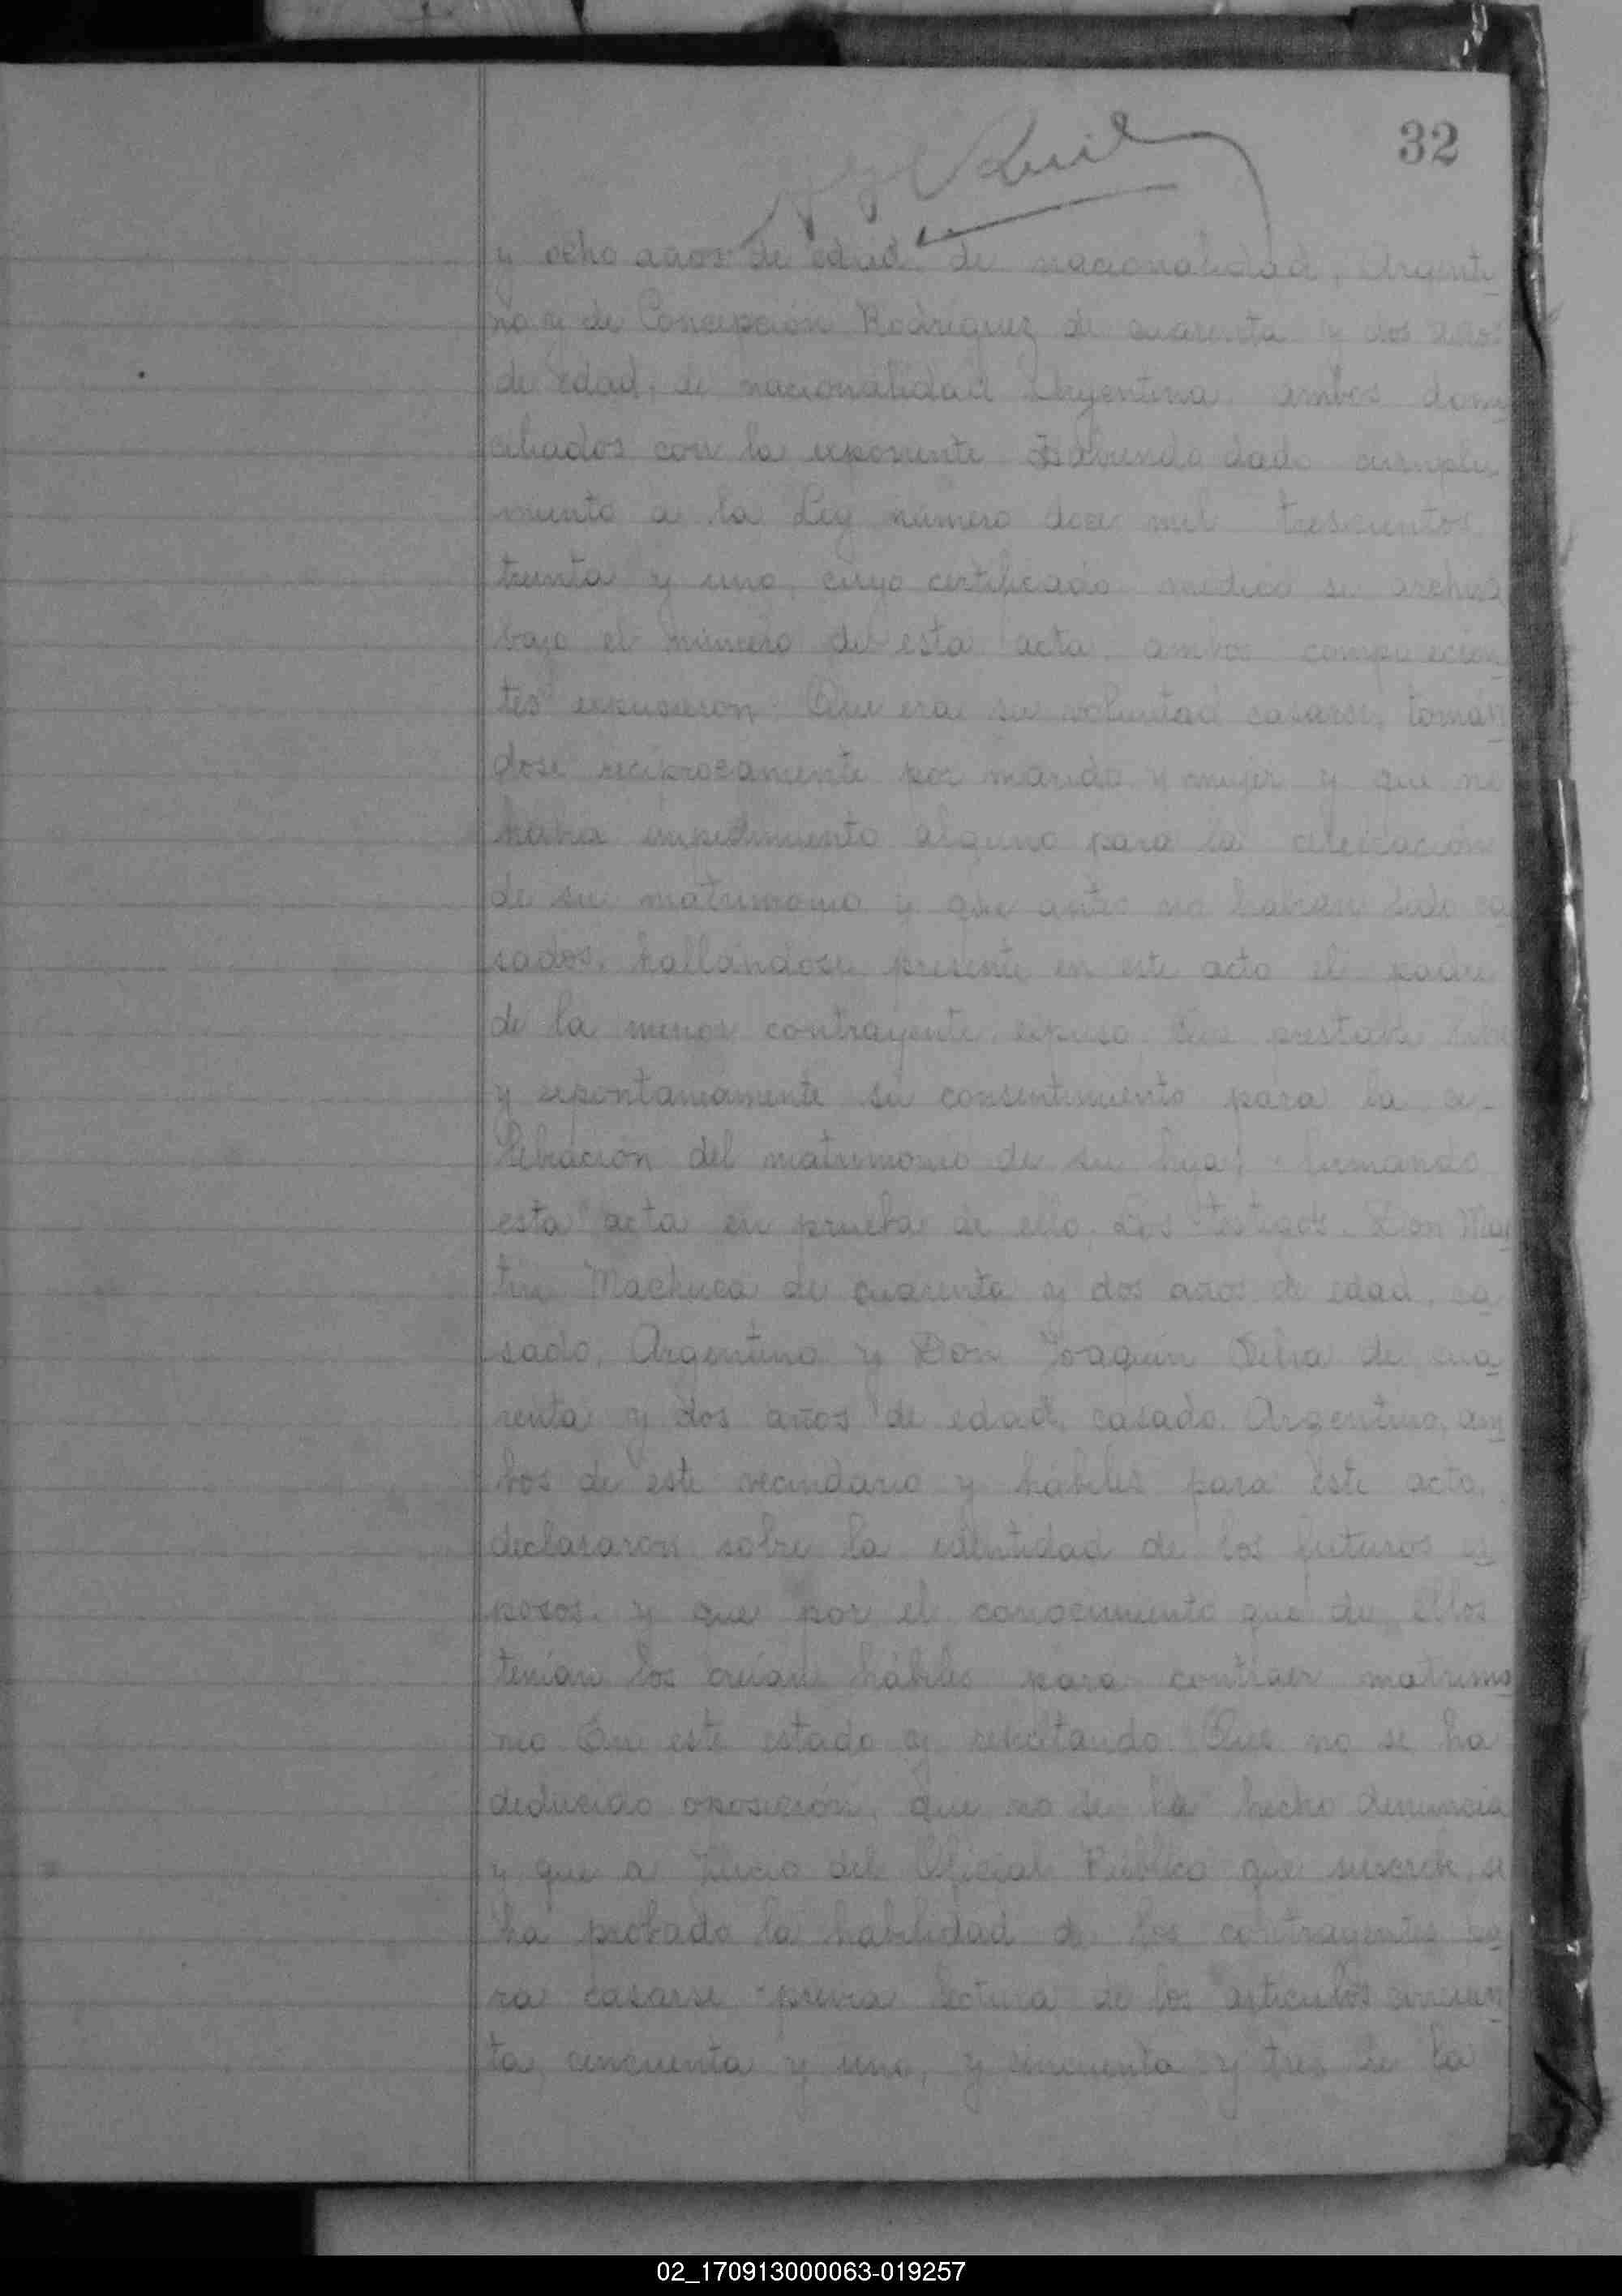 32
y ocho años de edad de nacionalidad, Argenti
no y de Concepción Rodriguez de cuarenta y dos años
de edad, de nacionalidad Argentina ambos domi
ciliados con la exponente Habiendo dado cumpli
miento a la Ley número doce mil trescientos
treinta y uno, cuyo certificado médico se archiva
bajo el número de esta acta, ambos comparecien
tes expusieron: Que era su voluntad casarse, tomán
dose reciprocamente por marido y mujer y que no
había impedimento alguno para la celebración
de su matrimonio y que antes no habían sido ca
sados, hallándose presente en este acto el padre
de la menor contrayente, expuso: Que prestaba libre
y espontaneamente su consentimiento para la ce-
lebración del matrimonio de su hija, firmando
esta acta en prueba de ello. Los testigos. Don Mar
tin Machuca de cuarenta y dos años de edad, ca
sado, Argentino y Don Joaquin de cua
renta y dos años de edad, casado, Argentino, am
bos de este vecindario y hábiles para este acto,
declararon sobre la identidad de los futuros es
posos, y que por el conocimiento que de ellos
tenían los creían hábiles para contraer matrimo
nio En este estado y resultando: Que no se ha
deducido oposición, que no se ha hecho denuncia
y que a Juicio del Oficial Público que suscribe, se
ha probado la habilidad de los contrayentes pa
ra casarse previa lectura de los articulos cincuen
ta, cincuenta y uno, y cincuenta y tres de la
02_170913000063-019257